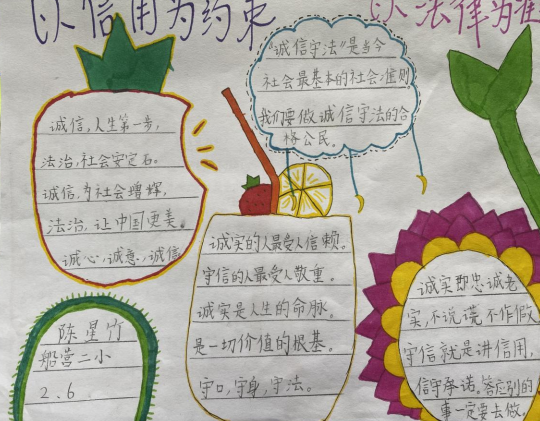 以信用为约束
以法律为准
"诚信守法"是当今
社会最基本的社会准则
我们要做诚信守法的合
格公民。
诚信,人生第一步,
法治,社会安定石。
诚信,为社会增辉,
法治,让中国更美。
诚心,诚意,诚信
诚实的人最受人信赖。
守信的人最受人敬重。
诚实是人生的命脉。
是一切价值的根基。
守口,守身,守法。
诚实即忠诚老
实,不说谎不作假
守信就是讲信用,
信守承诺。答应别的
事一定要去做。
陈星竹
船营二小
2.6